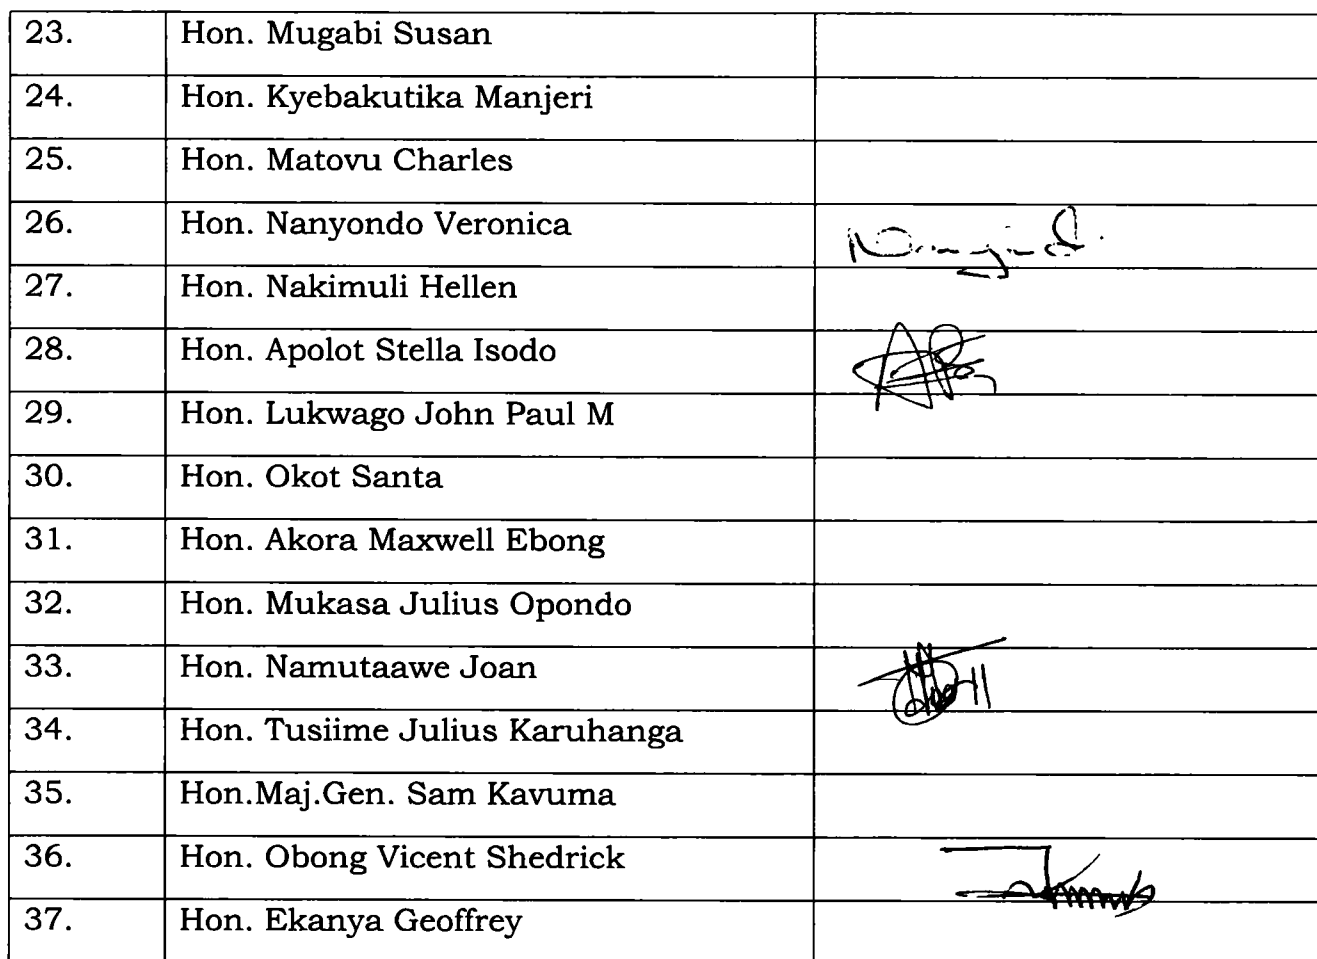 23. Hon. Mugabi Susan
24. Hon. Kyebakutika Manjeri
25. Hon. Matovu Charles
26. Hon. Nanyondo Veronica
27. Hon. Nakimuli Hellen
28. Hon. Apolot Stella Isodo
29. Hon. Lukwago John Paul M
30. Hon. Okot Santa
31. Hon. Akora Maxwell Ebong
32. Hon. Mukasa Julius Opondo
33. Hon. Namutaawe Joan
34. Hon. Tusiime Julius Karuhanga
35. Hon.Maj.Gen. Sam Kavuma
36. Hon. Obong Vicent Shedrick
37. Hon. Ekanya Geoffrey